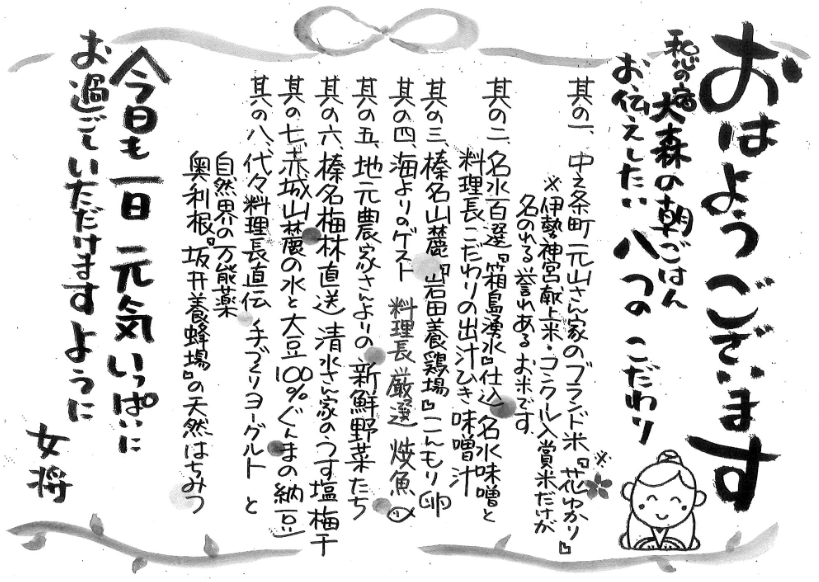 おはようございます
和心の宿 大森の朝ごはん
お伝えしたい 八つの こだわり
其の一、中之条町 元山さん家のブランド米『花ゆかり』※
※伊勢神宮献上米・コンクール入賞米だけが
名のれる 誉れある お米です
其の二、名水百選『箱島湧水』仕込 名水味噌と
料理長こだわりの出汁ひき 味噌汁
其の三、榛名山麓『岩田養鶏場』こんもり卵
其の四、海よりのゲスト 料理長 厳選 焼魚
其の五、地元農家さんよりの 新鮮野菜たち
其の六、榛名梅林直送 清水さん家のうす塩梅干
其の七、赤城山麓の水と大豆100%ぐんまの納豆
其の八、代々料理長直伝 手づくりヨーグルト と
自然界の万能薬
奥利根『坂井養蜂場』の天然はちみつ
今日も一日 元気 いっぱいに
お過ごしいただけますように
女将